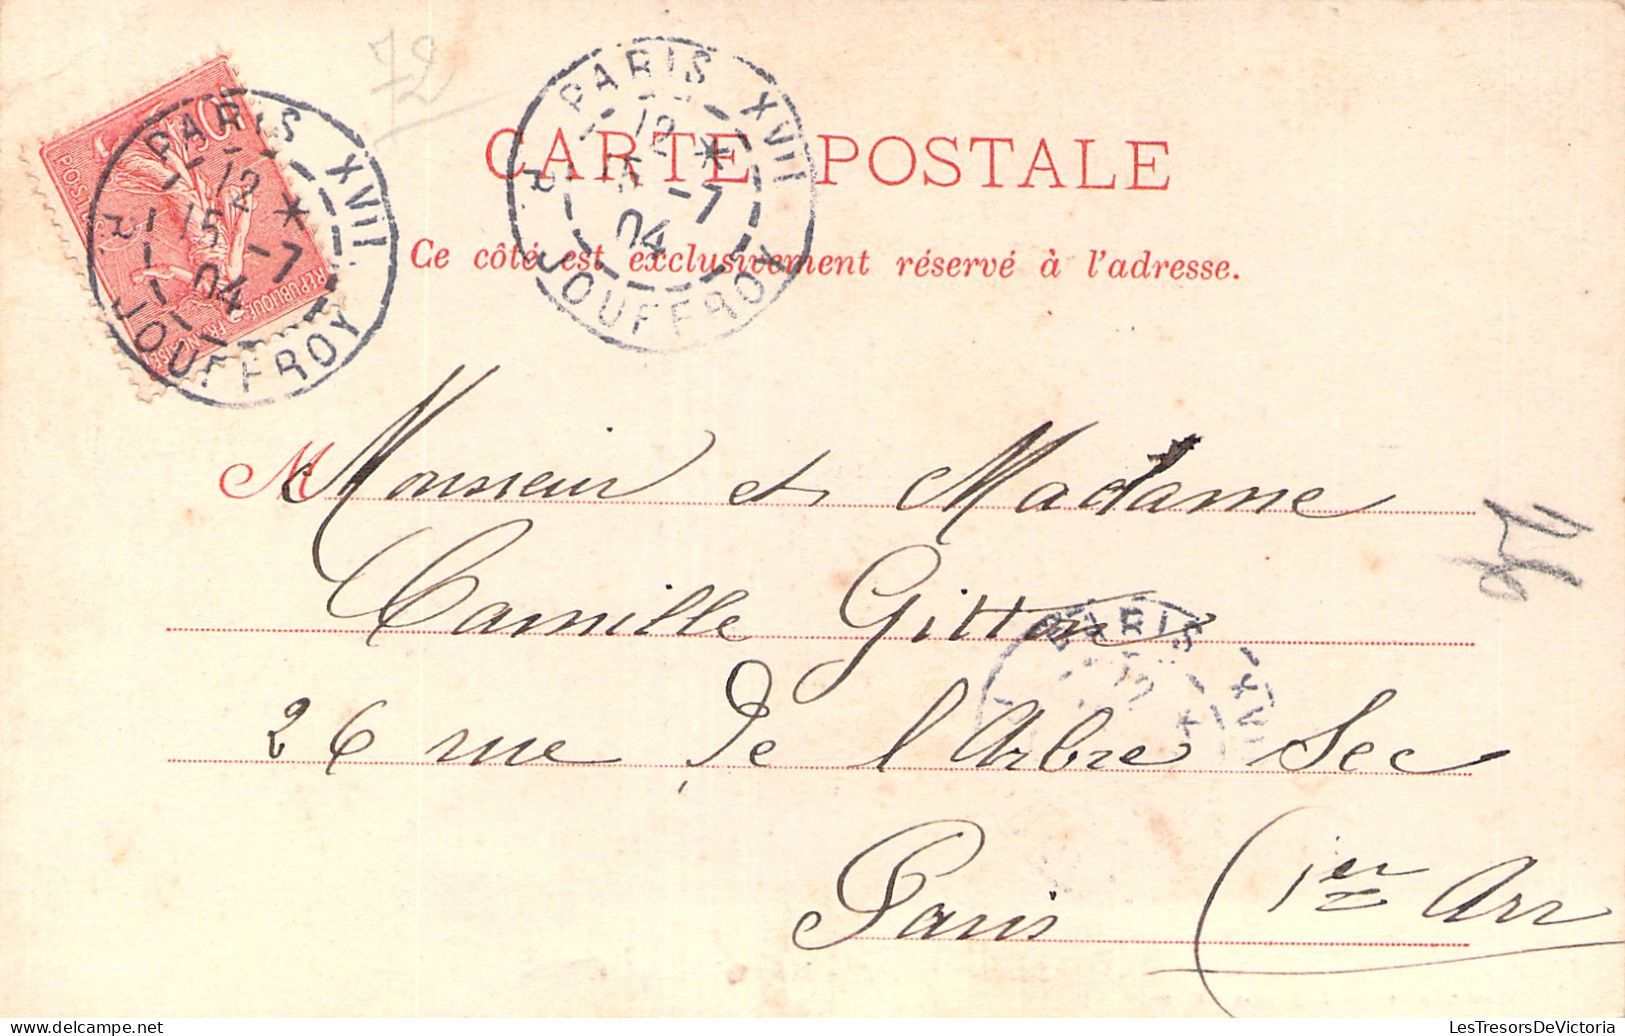 72
CARTE POSTALE
Ce côté est exclusivement réservé à l'adresse.
10
POSTES
REPUBLIQUE FRANÇAISE
PARIS XVII
12 *
15 -7
04
R. JOUFFROY
PARIS XVII
12 *
15 -7
04
R. JOUFFROY
M Monsieur et Madame
Camille Gitton
26 rue de l'Arbre Sec
Paris (1er Arr
PARIS XVII
12 *
www.LesTresorsDeVictoria.com
LesTresorsDeVictoria